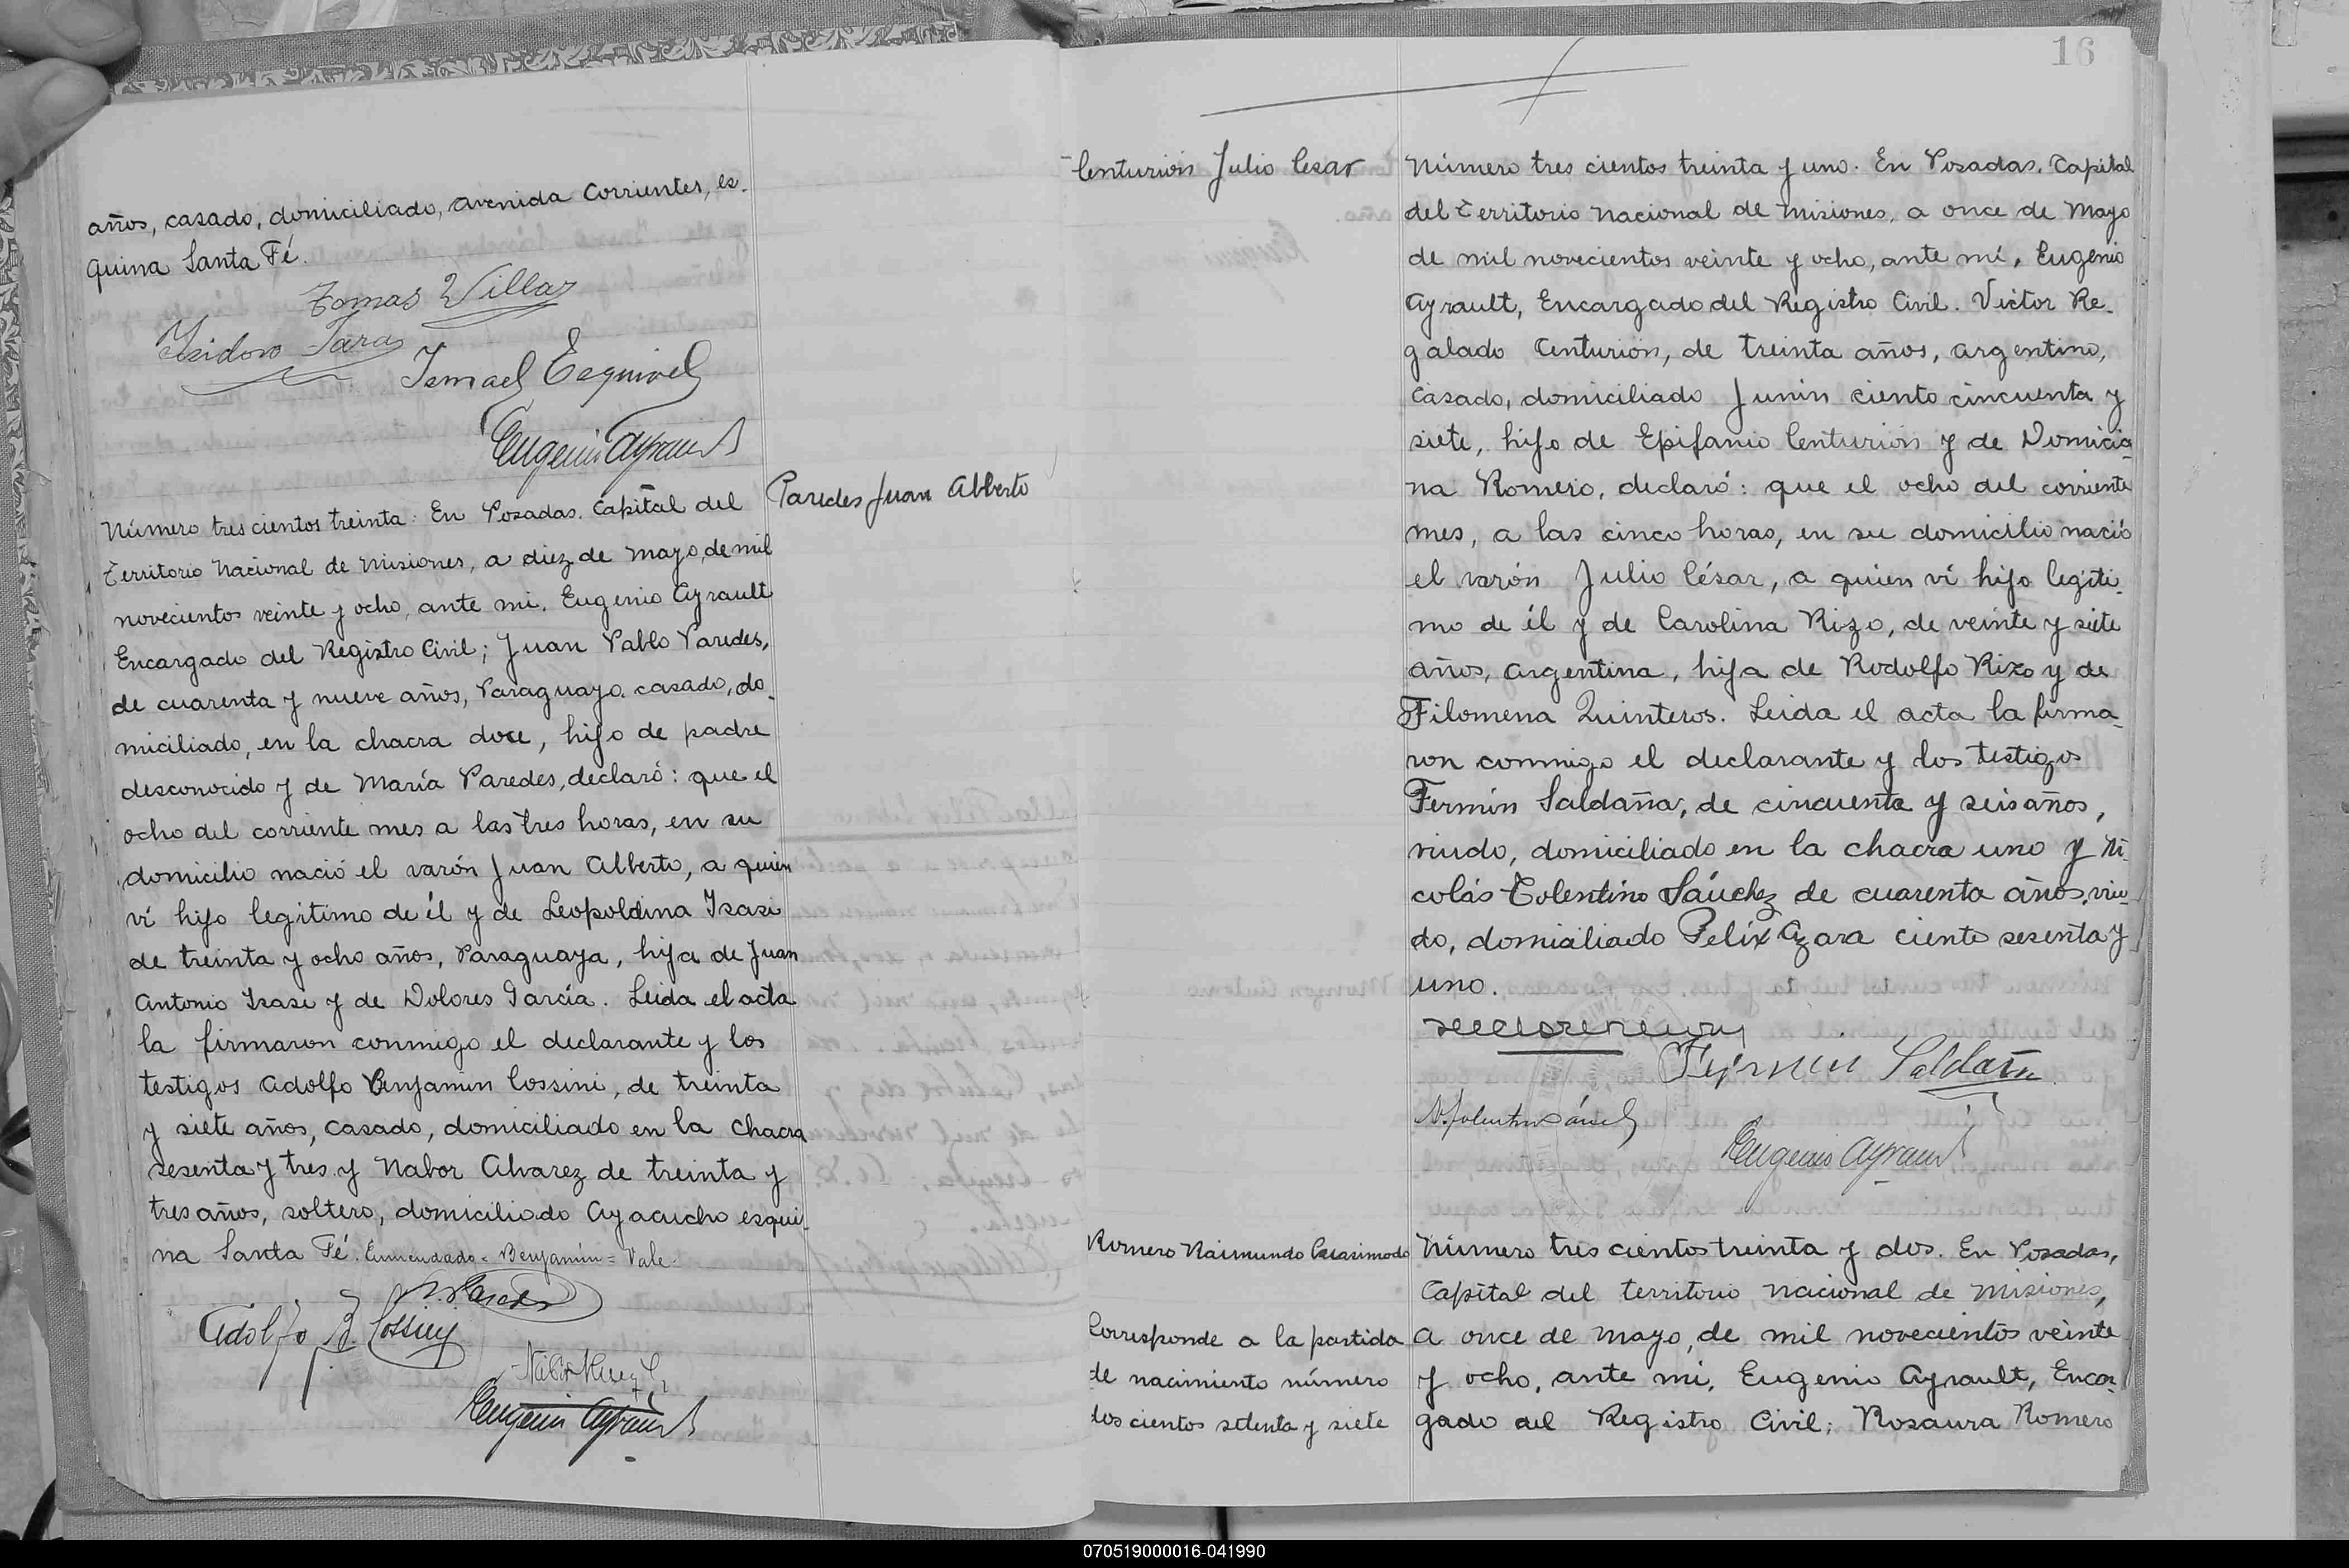 años, casado, domiciliado, avenida Corrientes, es-
quina Santa Fé.
Tomas Villar
Isidoro Jara
Ismael Esquivel
Eugenio Ayrault
Paredes Juan Alberto
Número tres cientos treinta: En Posadas. Capital del
Territorio Nacional de Misiones, a diez de Mayo, de mil
novecientos veinte y ocho, ante mi. Eugenio Ayrault
Encargado del Registro Civil; Juan Pablo Paredes,
de cuarenta y nueve años, Paraguayo. casado, do-
miciliado, en la chacra doce, hijo de padre
desconocido y de María Paredes, declaró: que el
ocho del corriente mes a las tres horas, en su
domicilio nació el varón Juan Alberto, a quien
ví hijo legitimo de él y de Leopoldina Isasi
de treinta y ocho años, Paraguaya, hija de Juan
Antonio Isasi y de Dolores García. Leida el acta
la firmaron conmigo el declarante y los
testigos Adolfo Benjamin Cossini, de treinta
y siete años, casado, domiciliado en la chacra
sesenta y tres. y Nabor Alvarez de treinta y
tres años, soltero, domiciliado Ayacucho esqui-
na Santa Fé. Enmendado = Benjamín = Vale.
Adolfo B. Cossiny
Eugenio Ayrault
16
Centurión Julio Cesar
Número tres cientos treinta y uno. En Posadas. Capital
del Territorio Nacional de Misiones, a once de Mayo
de mil novecientos veinte y ocho, ante mí, Eugenio
Ayrault, Encargado del Registro Civil. Victor Re-
galado Centurión, de treinta años, argentino,
casado, domiciliado Junín ciento cincuenta y
siete, hijo de Epifanio Centurión y de Domicia-
na Romero, declaró: que el ocho del corriente
mes, a las cinco horas, en su domicilio nació
el varón Julio César, a quien ví hijo legiti-
mo de él y de Carolina Rizo, de veinte y siete
años, Argentina, hija de Rodolfo Rizo y de
Filomena Quinteros. Leida el acta la firma-
ron conmigo el declarante y los testigos
Fermín Saldaña, de cincuenta y seis años,
viudo, domiciliado en la chacra uno y Ni-
colás Tolentino Sánchez de cuarenta años, viu-
do, domiciliado Felix Azara ciento sesenta y
uno.
Fermin Saldaña
Eugenio Ayrault
Romero Raimundo Cuasimodo
Corresponde a la partida
de nacimiento número
dos cientos setenta y siete
Número tres cientos treinta y dos. En Posadas,
Capital del territorio Nacional de Misiones,
a once de Mayo, de mil novecientos veinte
y ocho, ante mi, Eugenio Ayrault, Encar-
gado del Registro Civil; Rosaura Romero
070519000016-041990